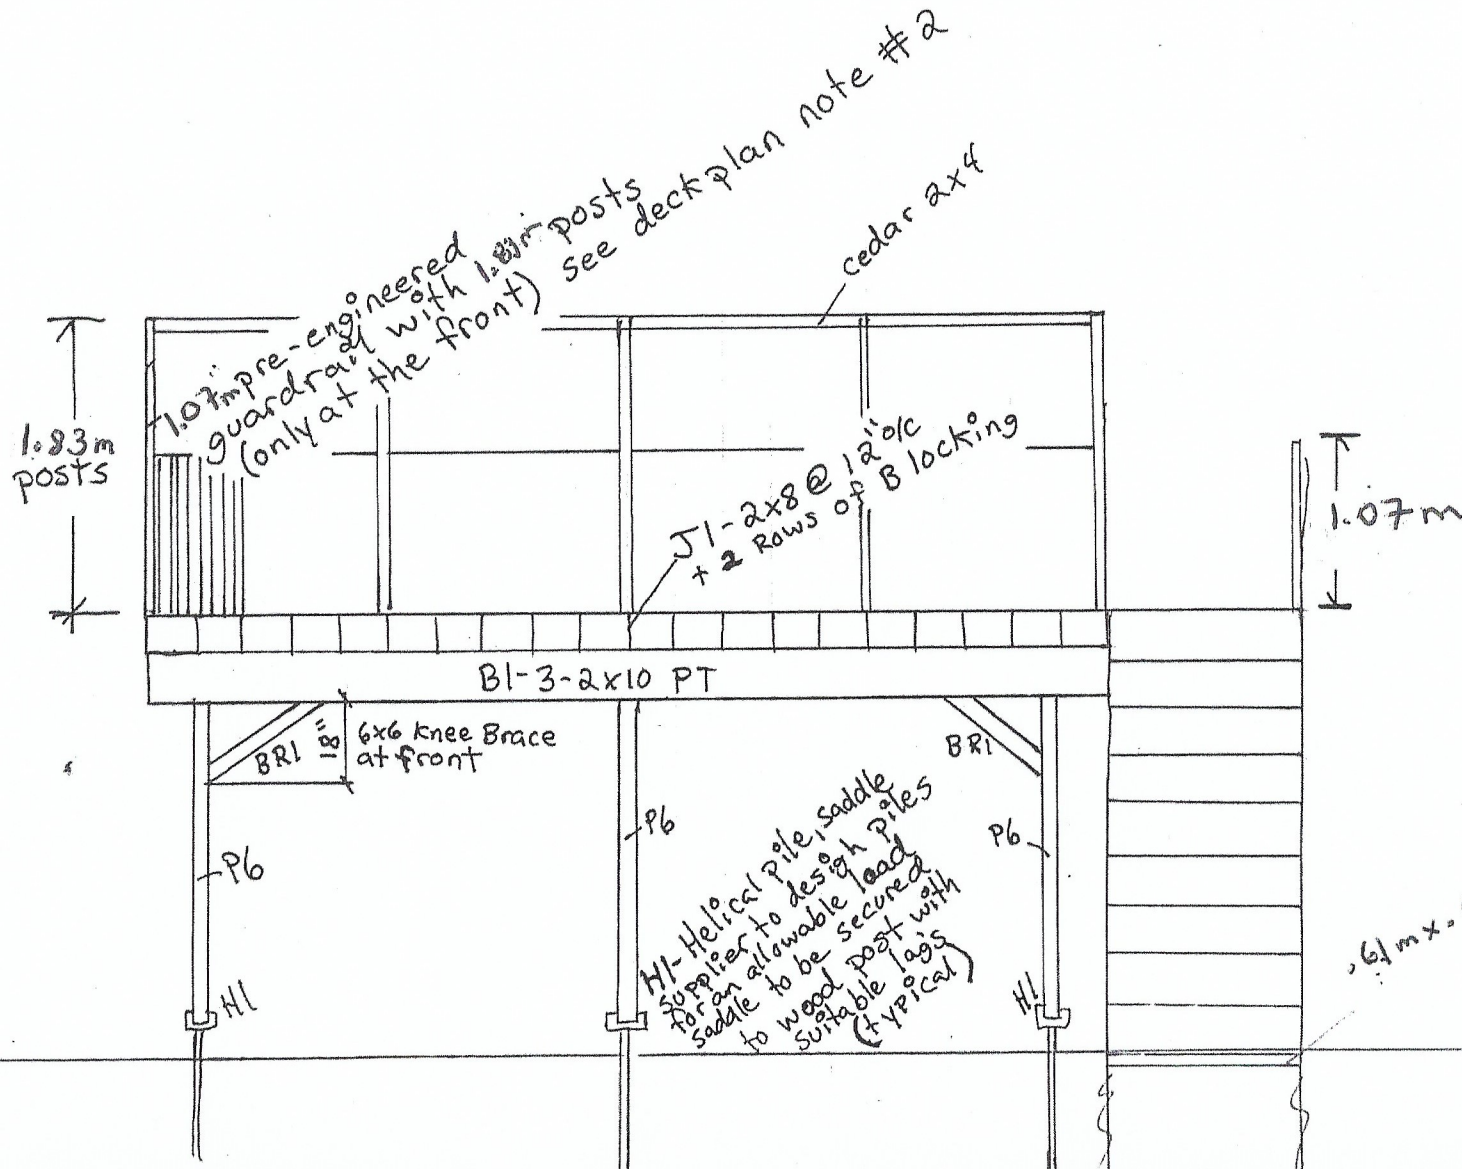 1.07m pre-engineered
guardrail with 1.83m posts
(only at the front) see deck plan note #2
cedar 2x4
1.83m
posts
J1-2x8 @ 12" o/c
+ 2 Rows of Blocking
1.07m
B1-3-2x10 PT
BR1
18"
6x6 Knee Brace
at front
BR1
P6
P6
P6
H1-Helical pile, saddle
supplier to design piles
for an allowable load
saddle to be secured
to wood post with
suitable lags
(typical)
H1
H1
.61m x.